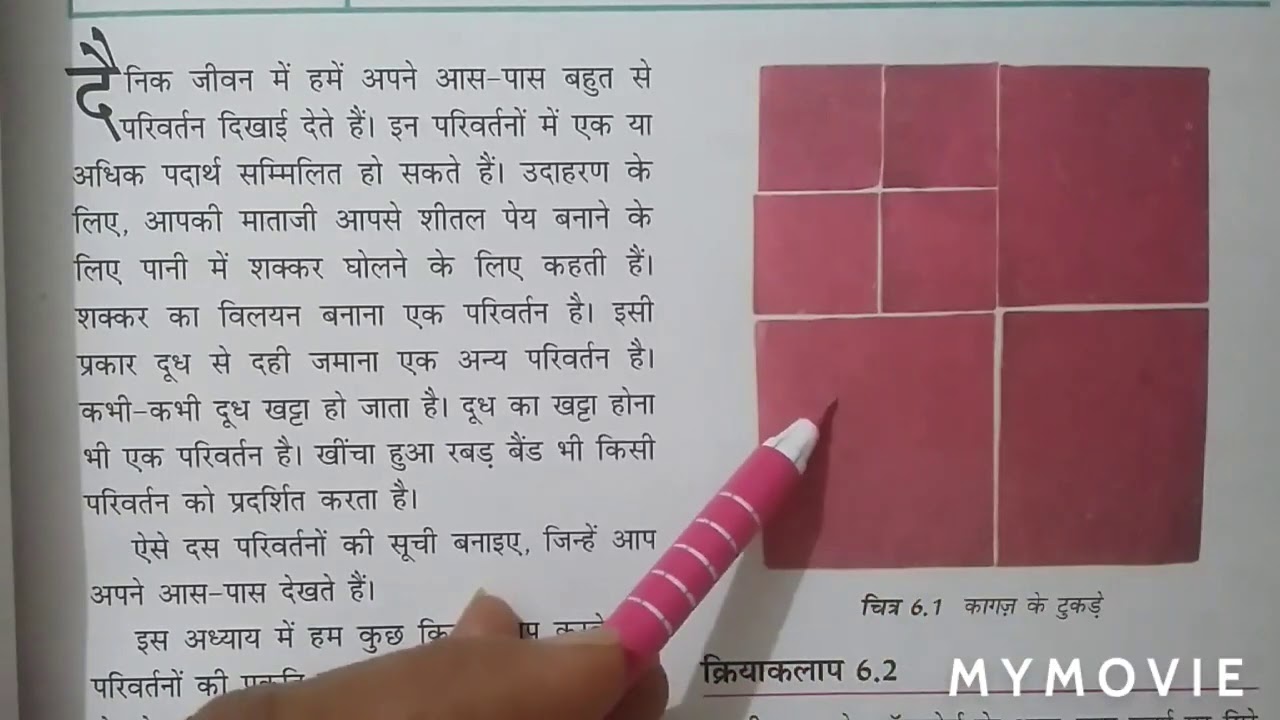 दैनिक जीवन में हमें अपने आस-पास बहुत से
परिवर्तन दिखाई देते हैं। इन परिवर्तनों में एक या
अधिक पदार्थ सम्मिलित हो सकते हैं। उदाहरण के
लिए, आपकी माताजी आपसे शीतल पेय बनाने के
लिए पानी में शक्कर घोलने के लिए कहती हैं।
शक्कर का विलयन बनाना एक परिवर्तन है। इसी
प्रकार दूध से दही जमाना एक अन्य परिवर्तन है।
कभी-कभी दूध खट्टा हो जाता है। दूध का खट्टा होना
भी एक परिवर्तन है। खींचा हुआ रबड़ बैंड भी किसी
परिवर्तन को प्रदर्शित करता है।
ऐसे दस परिवर्तनों की सूची बनाइए, जिन्हें आप
अपने आस-पास देखते हैं।
इस अध्याय में हम कुछ
परिवर्तनों की
चित्र 6.1 कागज़ के टुकड़े
क्रियाकलाप 6.2
MYMOVIE